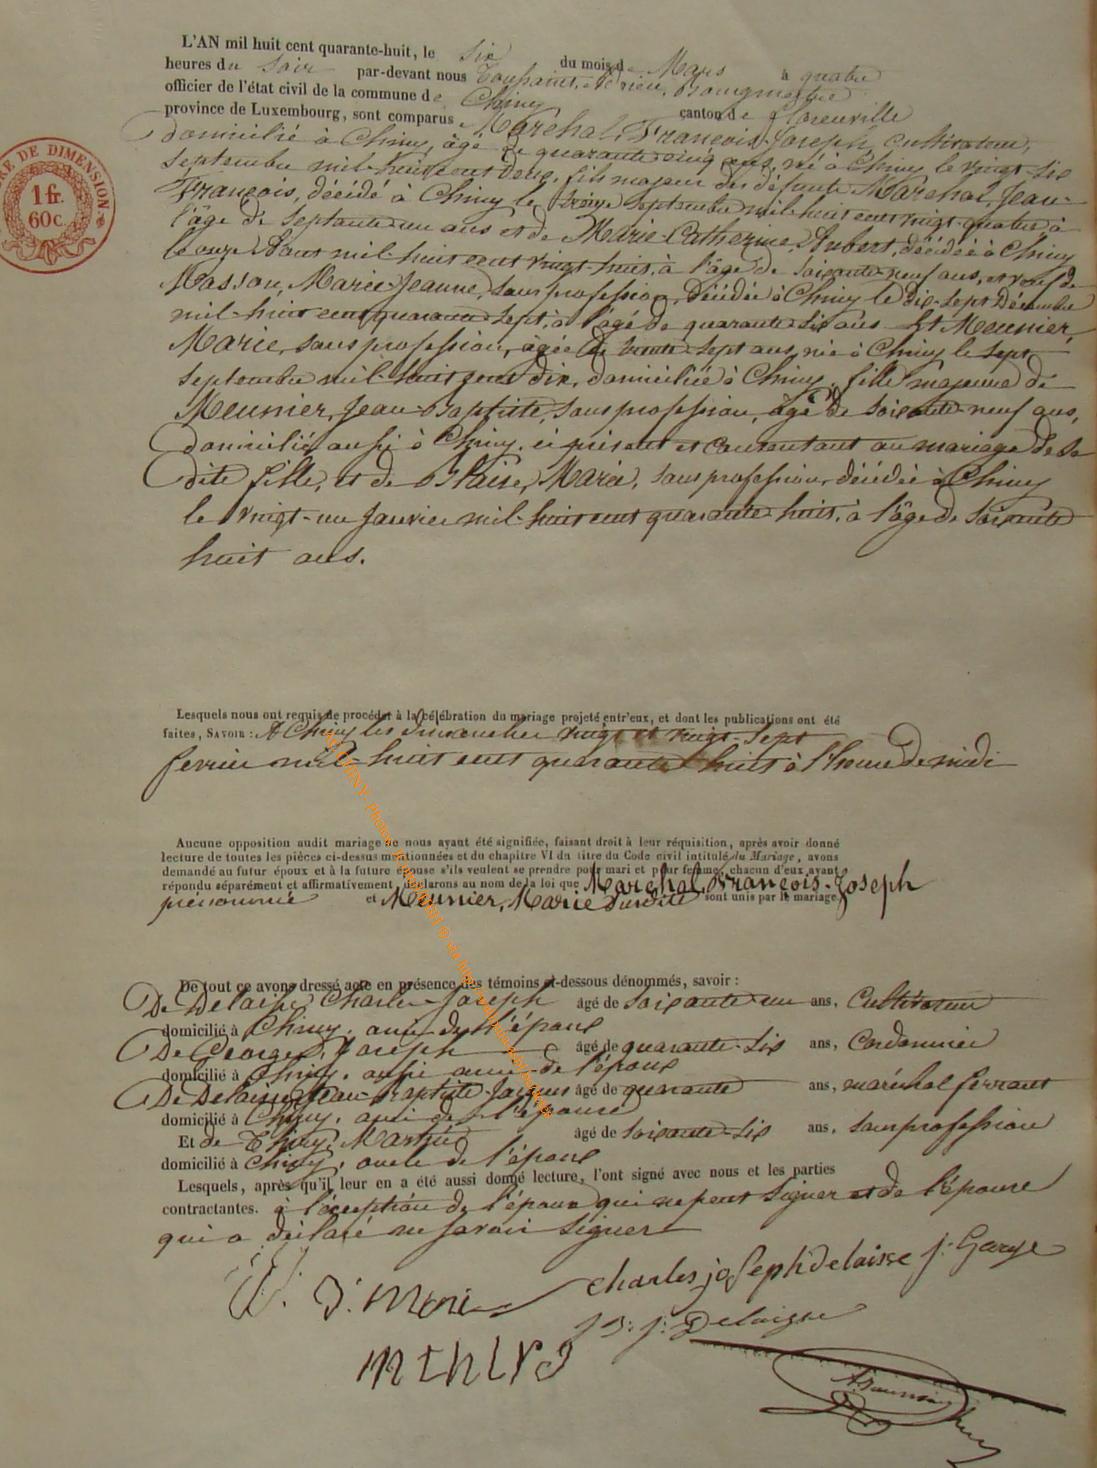 RE DE DIMENSION
1 fr.
60c.
L'AN mil huit cent quarante-huit, le six du mois de Mars à quatre
heures du soir par-devant nous Toussaint, bourgmestre
officier de l'état civil de la commune de Chiny canton de Florenville
province de Luxembourg, sont comparus Maréchal, François-Joseph, cultivateur,
domicilié à Chiny, âgé de quarante cinq ans, né à Chiny le vingt-six
septembre mil-huit cent deux, fils majeur des défunts Maréchal, Jean-
François, décédé à Chiny le treize septembre mil-huit cent vingt-quatre à
l'âge de septante un ans et de Marie-Catherine Hubert, décédée à Chiny
le onze Aout mil-huit cent vingt-huit, à l'âge de soixante-neuf ans, et veuf de
Masson, Marie-Jeanne, sans profession, décédée à Chiny le dix-sept Décembre
mil-huit cent quarante sept, à l'âge de quarante six ans Et Meunier,
Marie, sans profession, âgée de trente-sept ans, née à Chiny le sept
septembre mil-huit cent dix, domiciliée à Chiny, fille majeure de
Meunier, Jean-Baptiste, sans profession, âgé de soixante-neuf ans,
domicilié aussi à Chiny, ci présent et consentant au mariage de sa
dite fille, et de Blaise, Marie, sans profession, décédée à Chiny
le vingt-un Janvier mil-huit cent quarante huit, à l'âge de soixante
huit ans.
Lesquels nous ont requis de procéder à la célébration du mariage projeté entr'eux, et dont les publications ont été
faites, SAVOIR : A Chiny les dimanches vingt et vingt-sept
fevrier mil-huit cent quarante huit à l'heure de midi
Aucune opposition audit mariage ne nous ayant été signifiée, faisant droit à leur réquisition, après avoir donné
lecture de toutes les pièces ci-dessus mentionnées et du chapitre VI du titre du Code civil intitulé du Mariage, avons
demandé au futur époux et à la future épouse s'ils veulent se prendre pour mari et pour femme, chacun d'eux ayant
répondu séparément et affirmativement, déclarons au nom de la loi que Maréchal, François-Joseph
prénommé et Meunier, Marie susdite sont unis par le mariage.
De tout ce avons dressé acte en présence des témoins ci-dessous dénommés, savoir :
De Delaisse, Charles-Joseph âgé de soixante-un ans, Cultivateur
domicilié à Chiny, ami de l'époux
De Georges, Joseph âgé de quarante-six ans, Cordonnier
domicilié à Chiny, aussi ami de l'époux
De Delaisse, Jean-Baptiste-Jacques âgé de quarante ans, maréchal ferrant
domicilié à Chiny, ami de l'épouse
Et de Thiry, Martin âgé de soixante-six ans, sans profession
domicilié à Chiny, oncle de l'époux
Lesquels, après qu'il leur en a été aussi donné lecture, l'ont signé avec nous et les parties
contractantes. à l'exception de l'époux qui ne peut signer et de l'épouse
qui a déclaré ne savoir signer
Charles joseph Delaisse
J: J: Delaisse